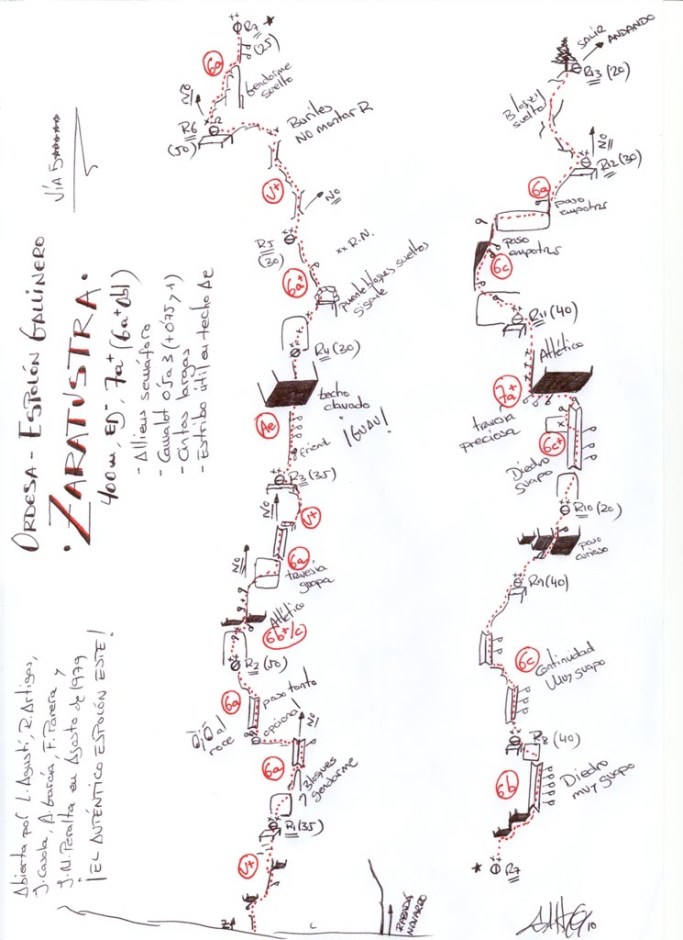 ORDESA - ESPOLÓN GALLINERO
· ZARATUSTRA ·
400m, ED-, 7a+ (6a+ obl)
- Aliens semáforo
- Camalot 0,5 a 3 (+ 0,75, 1)
- Cintas largas
- Estribo útil en techo Ae
Abierta por L. Agustí, R. Artigas,
J. Casola, A. García, F. Porera y
J. M. Peralta en Agosto de 1979
¡EL AUTÉNTICO ESPOLÓN ESTE!
R7
(25)
6a
Gendarme
suelto
NO
R6
(50)
Buriles
NO montar R
V+
NO
R5
(30)
xx R.N.
6a+
puente bloques sueltos
sigante
R4 (30)
techo
clavado
¡GUAU!
Ae
friend
R3 (35)
NO
V+
6a
NO
travesía
guapa
Atlético
6b+/c
R2 (50)
6a
paso tonto
opcional
NO
al
roce
6a
Bloques
gendarme
R1 (35)
V+
RABADÁ
NAVARRO
SALIR
ANDANDO
R13 (20)
Bloques
sueltos
NO
R12 (30)
6a
paso
empotrar
paso
empotrar
6c
R11 (40)
Atlético
7a+
travesía
preciosa
6c+
Diedro
guapo
R10 (20)
paso
curioso
R9 (40)
6c
Continuidad
Muy guapo
R8 (40)
6b
Diedro
muy guapo
R7